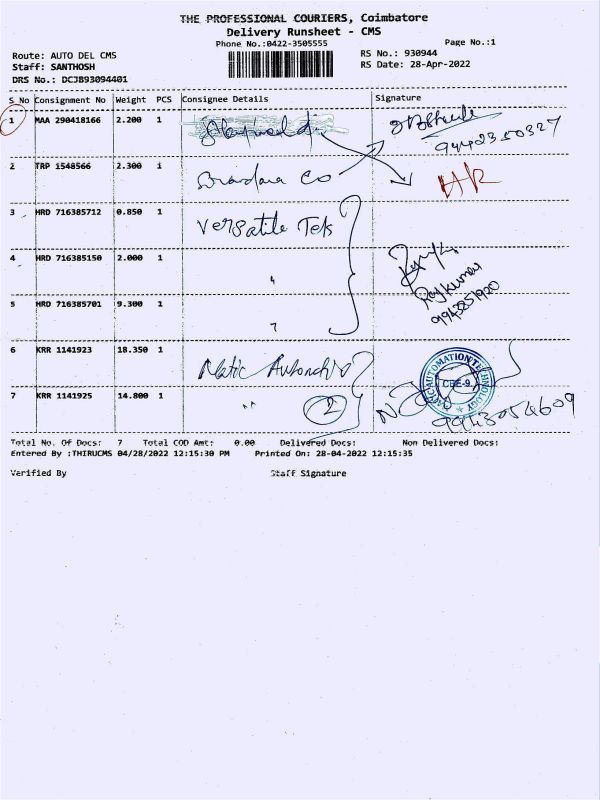 THE PROFESSIONAL COURIERS, Coimbatore
Delivery Runsheet - CMS
Phone No.:0422-3505555
Page No.:1
Route: AUTO DEL CMS
RS No.: 930944
Staff: SANTHOSH
RS Date: 28-Apr-2022
DRS No.: DCJB93094401
S No Consignment No Weight PCS Consignee Details Signature
1 MAA 290418166 2.200 1
9442350327
2 TRP 1548566 2.300 1 Co
3 HRD 716385712 0.850 1 Versatile Teks
4 HRD 716385150 2.000 1 "
Rajkumar
5 HRD 716385701 9.300 1 "
6 KRR 1141923 18.350 1 Matic
7 KRR 1141925 14.800 1 " 2
9943054609
Total No. Of Docs: 7 Total COD Amt: 0.00 Delivered Docs: Non Delivered Docs:
Entered By :THIRUCMS 04/28/2022 12:15:30 PM Printed On: 28-04-2022 12:15:35
Verified By Staff Signature